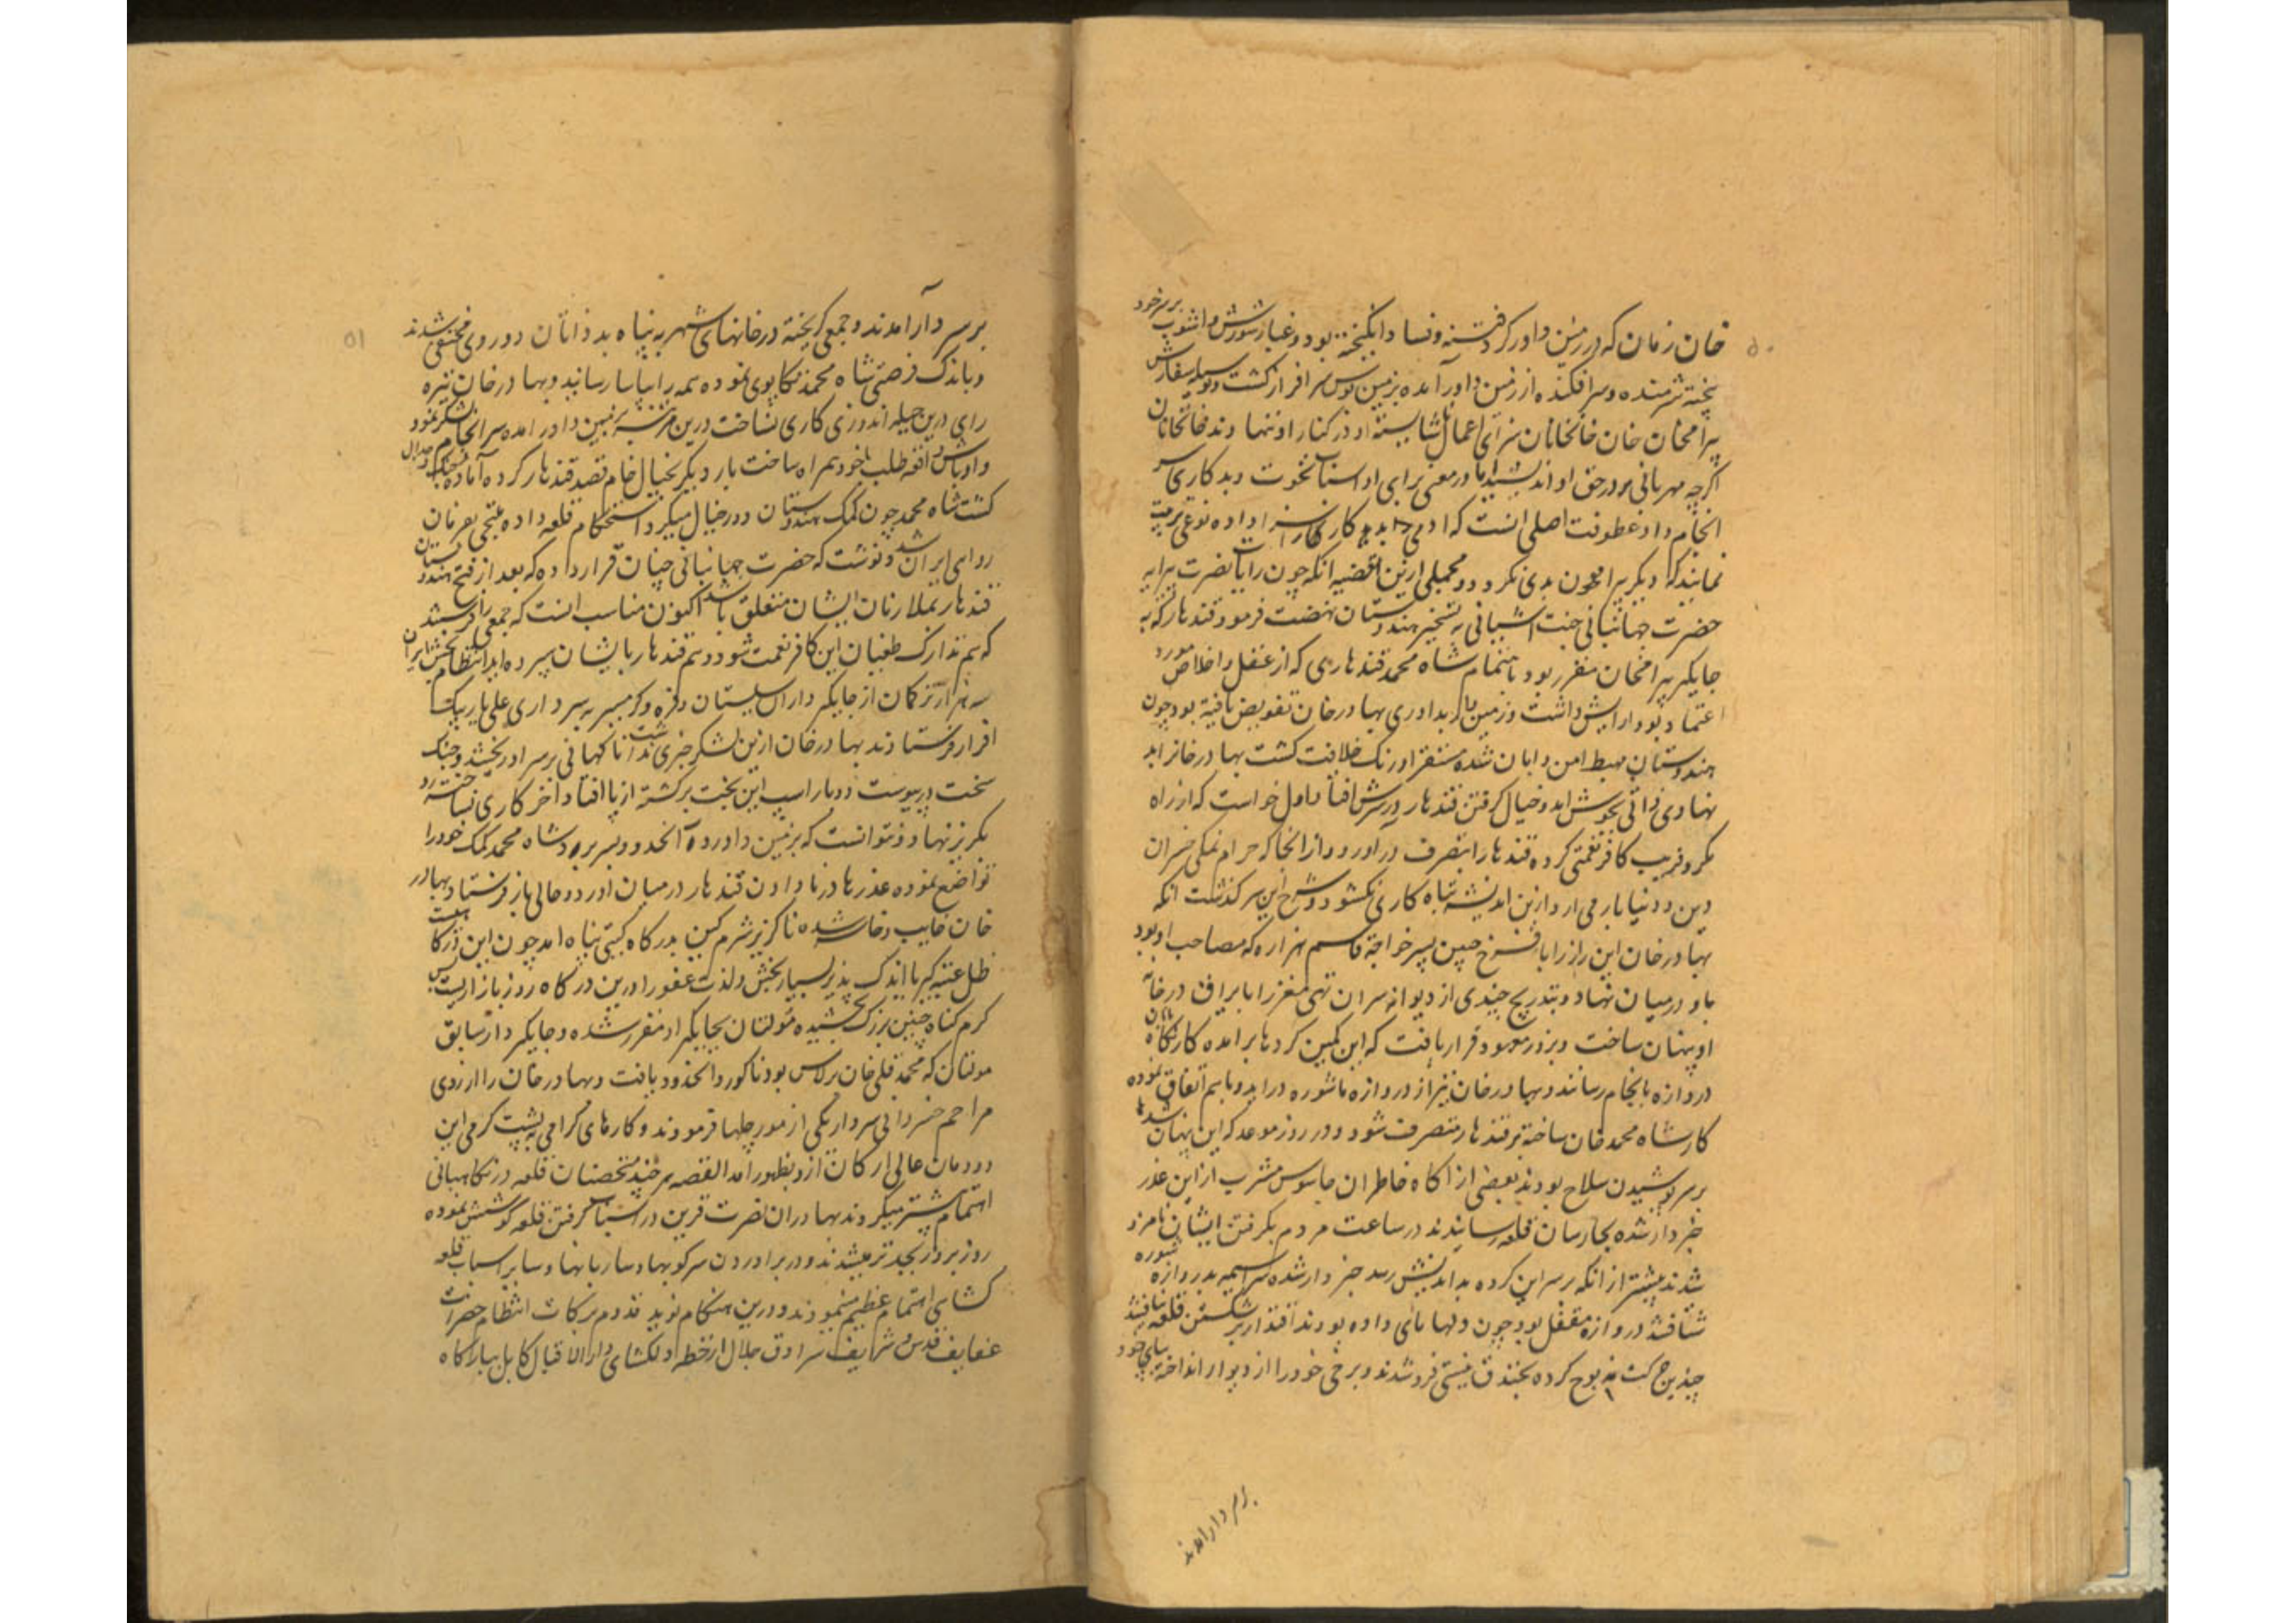 ۵۰
خان زمان که در زمین داور کرد فتنه و فساد انگیخته بود و غبار شورش و آشوب بر سر خود
بیخته شرمنده و سرافکنده از زمین داور آمده بزمین بوس سرافراز گشت و بوسیله سفارش
بیرامخان خان خانخانان سزای اعمال ناشایسته او در کنار او ننهادند خانخانان
اگرچه مهربانی در حق او اندیشید اما در معنی برای او اسباب نخوت و بدکاری سر
انجام داد عطوفت اصلی انست که آدمی را بد کار سزا داده نوعی تربیت
نمایند که دیگر پیرامون بدی نگردد و مجملی ازین قضیه انکه چون رایات نصرت پیرایه
حضرت جهانبانی جنت آشیانی به تسخیر هندوستان نهضت فرمود قندهار که به
جایگیر بیرامخان مقرر بود باهتمام شاه محمد قندهاری که از عقل و اخلاص مورد
اعتماد بود و آرایش داشت و زمین داور به بهادرخان تفویض یافته بود چون
هندوستان مهبط امن و امان شده مستقر اورنک خلافت کشت بهادرخانرا بد
نهادی ذاتی بجوش آمد و خیال کرفتن قندهار در سرش افتاد اول خواست که از راه
مکر و فریب کافر نعمتی کرده قندهار را بتصرف درآورد و از آنجا که حرام نمکی خسران
دین و دنیا بار می آرد ازین اندیشه تباه کاری نکشود و شرح این سرگذشت انکه
بهادرخان این راز را با فرخ حسین پسر خواجه قاسم هزاره که مصاحب او بود
باو درمیان نهاد و بتدریج چندی از دیوانه سران تهی مغز را با یراق در خانه
او پنهان ساخت و بروز موعود قرار یافت که این کمین کردها برآمده کار نگاهبانان
دروازه بانجام رسانند و بهادرخان نیز از دروازه ماشوره درآید و باهم اتفاق نموده
کار شاه محمد خان ساخته بر قندهار متصرف شود و در روز موعد که این پنهان شدها
بر سر پوشیدن سلاح بودند بعضی از آگاه خاطران جاسوس مشرب از این غدر
خبردار شده بحارسان قلعه رسانیدند در ساعت مردم بکرفتن ایشان نامزد
شدند پیشتر از انکه بر سر این کرده بداندیش رسد خبردار شده سراسیمه بدروازه ماشوره
شتافتند دروازه مقفل بود چون دلها بای داده بودند اقتدار بر شکستن قفل نیافتند
چندین حرکت مذبوح کرده بخندق نیستی فروشدند و برخی خود را از دیوار انداخته بپای خود
بر سر دار آمدند
۵۱
بر سر دار آمدند و جمعی گریخته در خانهای شهر به پناه بد ذاتان دو روی مختفی شدند
و باندک فرصتی شاه محمد تکاپوی نموده همه را بیاسا رسانید و بهادرخان تیره
رای درین حیله اندوزی کاری نساخت درین مرتبه بزمین داور آمده سرانجام لشکر نمود
و اوباش واقعه طلب با خود همراه ساخت بار دیگر بخیال خام قصد قندهار کرده آماده جنگ و جدال
گشت شاه محمد چون کمک هندوستان دور خیال میکرد استحکام قلعه داده ملتجی بفرمان
روای ایران شد و نوشت که حضرت جهانبانی چنان قرار داده که بعد از فتح هندوستان
قندهار بملازمان ایشان متعلق باشد اکنون مناسب انست که جمعی را فرستند
که هم تدارک طغیان این کافر نعمت شود و هم قندهار بایشان سپرده آید انتظام بخش ایران
سه هزار ترکمان از جایگیرداران سیستان و فره و گرمسیر بسرداری علی یار بیک
افرار فرستادند بهادرخان ازین لشکر خبری نداشت تا ناگهانی بر سر او ریختند و جنک
سخت درپیوست دوبار اسپ این بخت برگشته از پا افتاد آخر کاری نساخته رو
بکریز نهاد و نتوانست که بزمین داور در آن حدود بسر برد و شاه محمد کمک خود را
تواضع نموده عذرها در نادادن قندهار درمیان اورد و خالی باز فرستاد و بهادر
خان خایب و خاسر شده ناگزیر شرمگین بدرگاه گیتی پناه آمد چون این درگاهیست
ظل عتبه کبریا اندک پذیر بسیار بخش و لذت عفو را درین درگاه روز بازاریست بس
کرم گناه چنین بزرگ بخشیده مولتان بجایگیر او مقرر شده و جایگیردار سابق
مولتان که محمد قلی خان برلاس بود ناگور و آنحدود یافت و بهادرخان را از روی
مراحم خسروانی سردار یکی از مورچلها فرمودند و کارهای گرامی به پشت گرمی این
دودمان عالی ارکان ازو بظهور آمد القصه هرچند متحصنان قلعه در نگاهبانی
اهتمام بیشتر میکردند بهادران نصرت قرین در اسباب گرفتن قلعه کوشش نموده
روز بروز بجدتر میشدند و در برآوردن سرکوبها و ساباطها و سایر اسباب قلعه
کشایی اهتمام عظیم مینمودند و درین هنگام نوید قدوم برکات انتظام حضرات
عفایف قدس شرایف سرادق جلال از خطه دلکشای دارالاقبال کابل ببارگاه